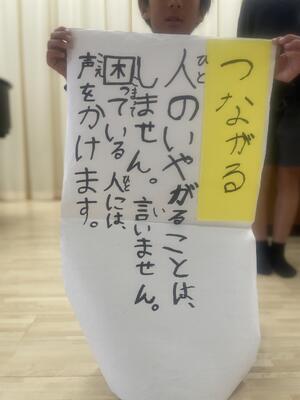 つながる
人のいやがることは、
しません。言いません。
困っている人には、
声をかけます。